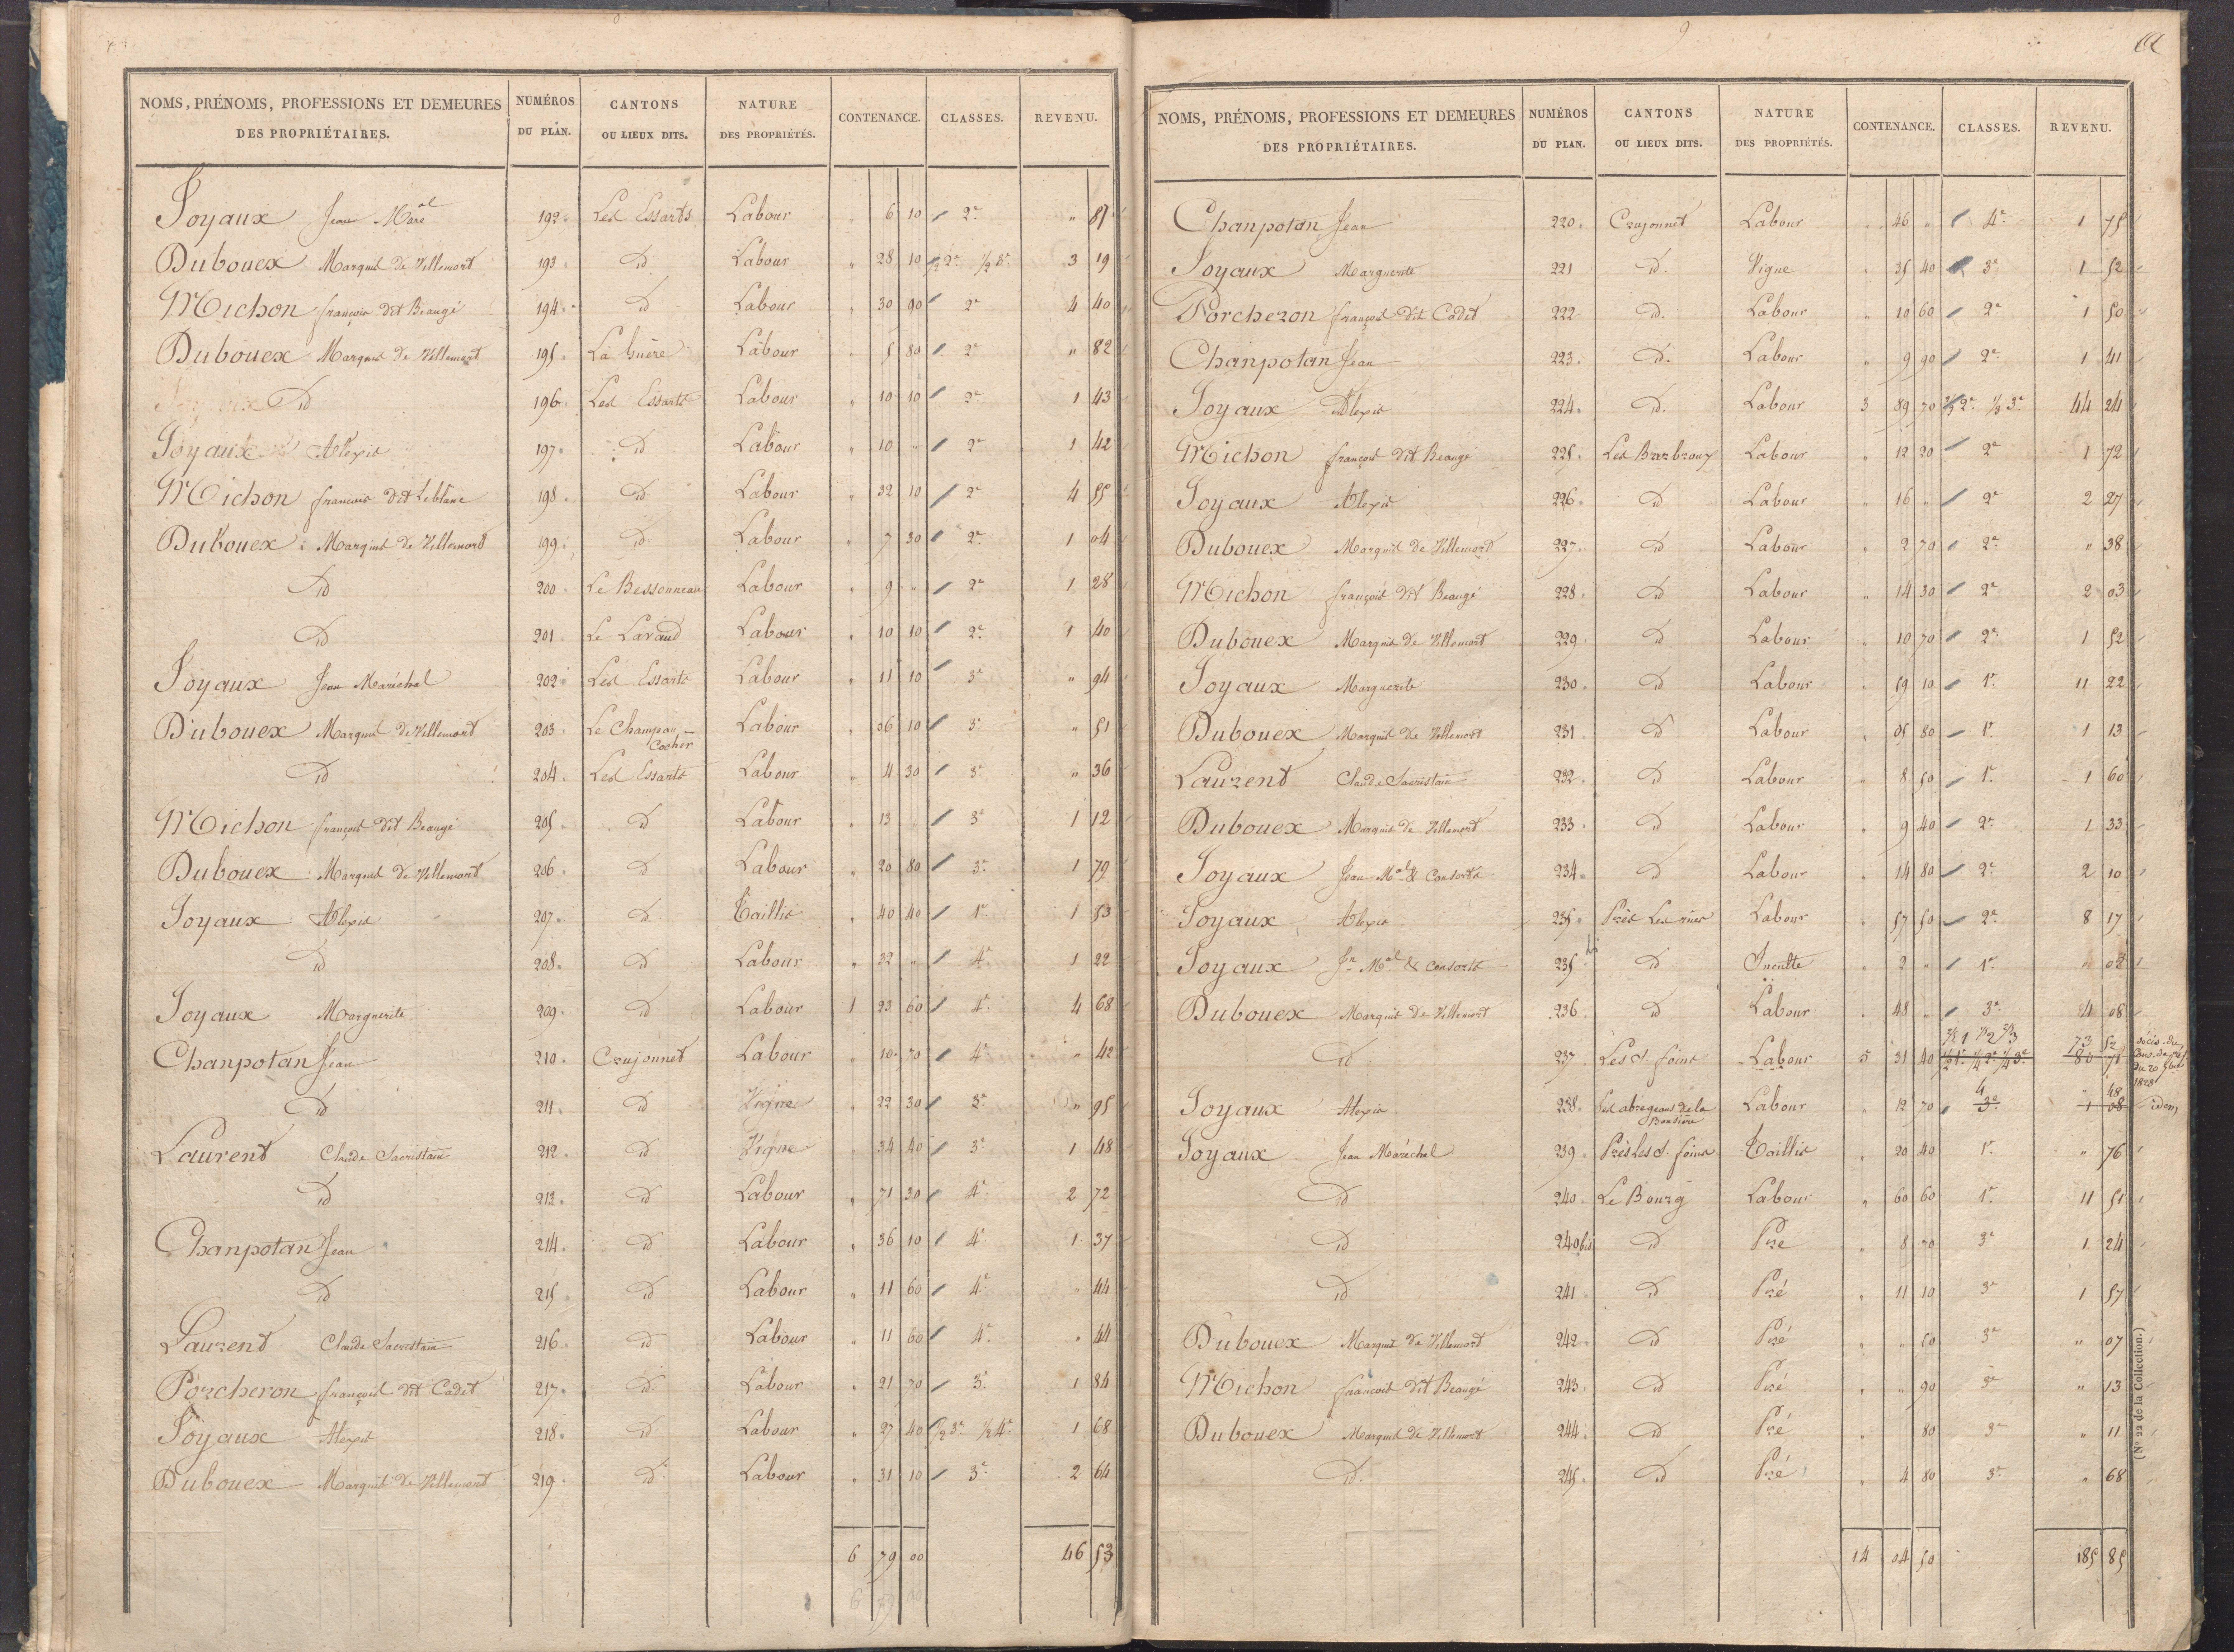 8
NOMS, PRÉNOMS, PROFESSIONS ET DEMEURES DES PROPRIÉTAIRES. NUMÉROS DU PLAN. CANTONS OU LIEUX DITS. NATURE DES PROPRIÉTÉS. CONTENANCE. CLASSES. REVENU.
Joyaux Jean Maral 192 Les Essarts Labour 6 10 2e " 87
Dubouex Marquis de Villemort 193 id Labour " 28 10 1/2 2e 1/2 3e 3 19
Michon françois dit Beaugé 194 id Labour " 30 90 2e 4 40
Dubouex Marquis de Villemort 195 Labour " 5 80 2e " 82
id 196 Les Essarts Labour " 10 10 2e 1 43
Joyaux Alexis 197 id Labour " 10 " 2e 1 42
Michon françois dit Leblanc 198 id Labour " 32 10 2e 4 55
Dubouex Marquis de Villemort 199 id Labour " 7 30 2e 1 04
id 200 Le Bessonneau Labour " 9 " 2e 1 28
id 201 Le Laraud Labour " 10 10 2e 1 40
Joyaux Jean Maréchal 202 Les Essarts Labour " 11 10 3e " 94
Dubouex Marquis de Villemort 203 Le Champau Cocher Labour " 06 10 3e " 51
id 204 Les Essarts Labour " 4 30 3e " 36
Michon françois dit Beaugé 205 id Labour " 13 " 3e 1 12
Dubouex Marquis de Villemort 206 id Labour " 20 80 3e 1 79
Joyaux Alexis 207 id Taillis " 40 40 1e 1 53
id 208 id Labour " 32 " 4e 1 22
Joyaux Marguerite 209 id Labour 1 23 60 4e 4 68
Chanpotan Jean 210 Crujonnet Labour " 10 70 4e " 42
id 211 id Vigne " 22 30 3e " 95
Laurent Claude Sacristain 212 id Vigne " 34 40 3e 1 48
id 213 id Labour " 71 30 4e 2 72
Chanpotan Jean 214 id Labour " 36 10 4e 1 37
id 215 id Labour " 11 60 4e " 44
Laurent Claude Sacristain 216 id Labour " 11 60 4e " 44
Porcheron françois dit Cadet 217 id Labour " 21 70 3e 1 84
Joyaux Alexis 218 id Labour " 27 40 1/2 3e 1/2 4e 1 68
Dubouex Marquis de Villemort 219 id Labour " 31 10 3e 2 64
6 79 00 46 53
6 79 00
9
NOMS, PRÉNOMS, PROFESSIONS ET DEMEURES DES PROPRIÉTAIRES. NUMÉROS DU PLAN. CANTONS OU LIEUX DITS. NATURE DES PROPRIÉTÉS. CONTENANCE. CLASSES. REVENU.
Chanpotan Jean 220 Crujonnet Labour " 46 " 4e 1 75
Joyaux Marguerite 221 id. Vigne " 35 40 3e 1 52
Porcheron françois dit Cadet 222 id. Labour " 10 60 2e 1 50
Chanpotan Jean 223 id. Labour " 9 90 2e 1 41
Joyaux Alexis 224 id. Labour 3 89 70 2/3 2e 1/3 3e 44 24
Michon françois dit Beaugé 225 Les Barbroux Labour " 12 20 2e 1 72
Joyaux Alexis 226 id Labour " 16 " 2e 2 27
Dubouex Marquis de Villemort 227 id Labour " 2 70 2e " 38
Michon françois dit Beaugé 228 id Labour " 14 30 2e 2 03
Dubouex Marquis de Villemort 229 id Labour " 10 70 2e 1 52
Joyaux Marguerite 230 id Labour " 59 10 1e 11 22
Dubouex Marquis de Villemort 231 id Labour " 05 80 1e 1 13
Laurent Claude Sacristain 232 id Labour " 8 50 1e 1 60
Dubouex Marquis de Villemort 233 id Labour " 9 40 2e 1 33
Joyaux Jean Mal & consorts 234 id Labour " 14 80 2e 2 10
Joyaux Alexis 235 Labour " 57 50 2e 8 17
Joyaux Jn Mal & consorts 235 bis id Inculte " 2 " 1e " 02
Dubouex Marquis de Villemort 236 id Labour " 48 " 3e 4 08
73 52 décis. du
id 237 Labour 5 31 40 1/2 1e 1/4 2e 1/4 3e 80 71
1828
4 " 48
Joyaux Alexis 238 Labour " 12 70 3e 1 08 idem
Joyaux Jean Maréchal 239 Taillis " 20 40 1e " 76
id 240 Le Bourg Labour " 60 60 1e 11 51
id 240 bis id Pré " 8 70 3e 1 24
id 241 id Pré " 11 10 3e 1 57
Dubouex Marquis de Villemort 242 id Pré " " 50 3e " 07
Michon françois dit Beaugé 243 id Pré " " 90 3e " 13
Dubouex Marquis de Villemort 244 id Pré " 80 3e " 11
id. 245 id Pré " 4 80 3e " 68
14 04 50 185 85
(N° 22 de la Collection.)